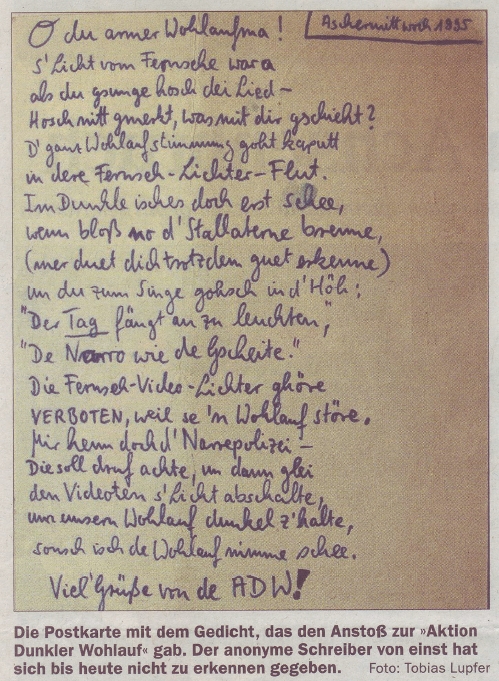 Aschermittwoch 1995
O du armer Wohlaufma!
s'Licht vom Fernsehe war a
als du gsunge hosch dei Lied –
Hosch nitt gmerkt, was mit dir gschieht?
D' ganz Wohlaufstimmung goht kaputt
in dere Fernseh-Lichter-Flut.
Im Dunkle isches doch erst schee,
wenn bloß no d'Stallaterne brenne,
(mer duet dich trotzdem guet erkenne)
un du zum Singe gohsch in d'Höh:
"Der Tag fängt an zu leuchten,"
"De Narro wie de Gscheite."
Die Fernseh-Video-Lichter ghöre
VERBOTEN, weil se 'n Wohlauf störe.
Mir henn doch d'Narrepolizei –
Die soll druf achte, un dann glei
den Videoten s'Licht abschalte,
um unsern Wohlauf dunkel z'halte,
sonsch isch de Wohlauf nimme schee.
Viel Grüße von de ADW!
Die Postkarte mit dem Gedicht, das den Anstoß zur »Aktion
Dunkler Wohlauf« gab. Der anonyme Schreiber von einst hat
sich bis heute nicht zu erkennen gegeben. Foto: Tobias Lupfer